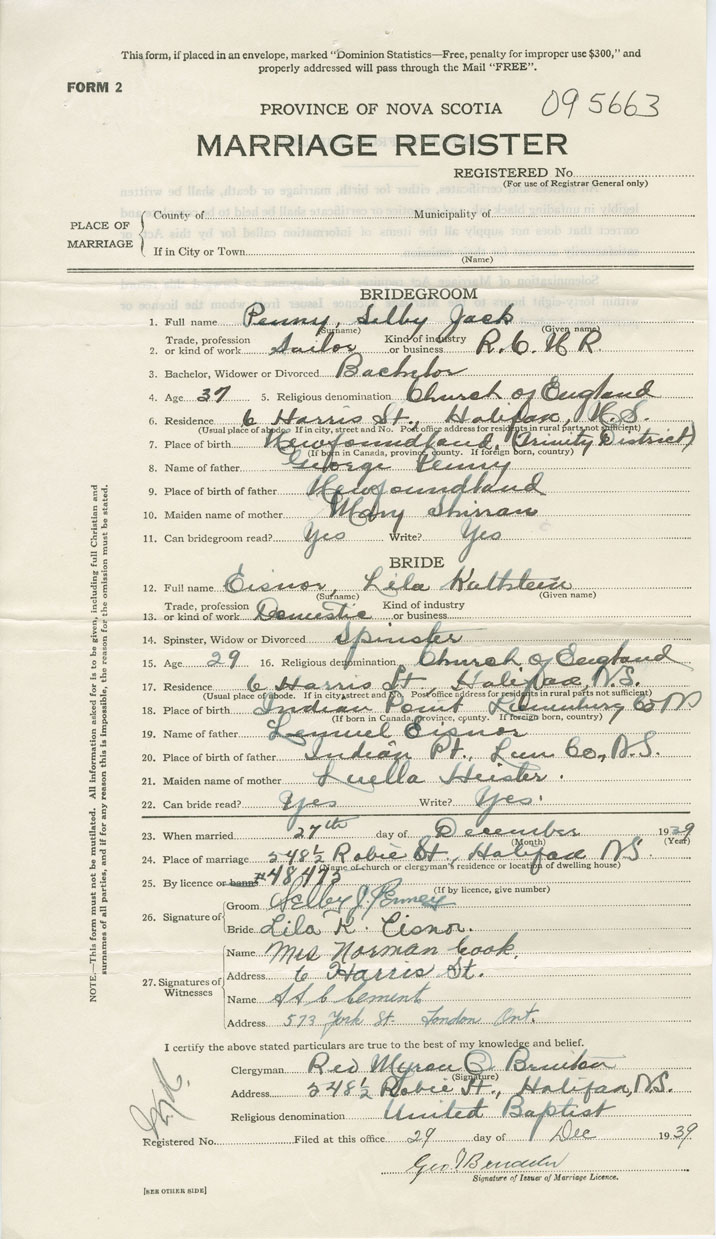 This form, if placed in an envelope, marked "Dominion Statistics—Free, penalty for improper use $300," and
properly addressed will pass through the Mail "FREE".
FORM 2
PROVINCE OF NOVA SCOTIA 095663
MARRIAGE REGISTER
REGISTERED No.
(For use of Registrar General only)
PLACE OF MARRIAGE
County of Municipality of
If in City or Town
(Name)
BRIDEGROOM
1. Full name Penny, Selby Jack
(Surname) (Given name)
2. Trade, profession or kind of work Sailor Kind of industry or business R.C.N.R.
3. Bachelor, Widower or Divorced Bachelor
4. Age 37 5. Religious denomination Church of England
6. Residence 6 Harris St., Halifax, N.S.
(Usual place of abode. If in city, street and No. Post office address for residents in rural parts not sufficient)
7. Place of birth Newfoundland, (Trinity District)
(If born in Canada, province, county. If foreign born, country)
8. Name of father George Penny
9. Place of birth of father Newfoundland
10. Maiden name of mother Mary
11. Can bridegroom read? Yes Write? Yes
BRIDE
12. Full name Eisnor, Lila Kathleen
(Surname) (Given name)
13. Trade, profession or kind of work Domestic Kind of industry or business
14. Spinster, Widow or Divorced Spinster
15. Age 29 16. Religious denomination Church of England
17. Residence 6 Harris St., Halifax, N.S.
(Usual place of abode. If in city, street and No. Post office address for residents in rural parts not sufficient)
18. Place of birth Indian Point Lunenburg Co NS
(If born in Canada, province, county. If foreign born, country)
19. Name of father Lemuel Eisnor
20. Place of birth of father Indian Pt., Lun Co., N.S.
21. Maiden name of mother Luella Heister.
22. Can bride read? Yes Write? Yes.
23. When married 27th day of December 1939
(Month) (Year)
24. Place of marriage 248½ Robie St., Halifax NS.
(Name of church or clergyman's residence or location of dwelling house)
25. By licence or banns #48493
(If by licence, give number)
26. Signature of
Groom Selby J. Penney
Bride Lila K. Eisnor.
27. Signatures of Witnesses
Name Mrs Norman Cook.
Address 6 Harris St.
Name Clement
Address 573 York St. London Ont.
I certify the above stated particulars are true to the best of my knowledge and belief.
Clergyman Rev Myron O. Brinton
(Signature)
Address 248½ Robie St., Halifax, N.S.
Religious denomination United Baptist
Registered No. Filed at this office 29 day of Dec 1939
Geo
Signature of Issuer of Marriage Licence.
[SEE OTHER SIDE]
NOTE.—This form must not be mutilated. All information asked for is to be given, including full Christian and
surnames of all parties, and if for any reason this is impossible, the reason for the omission must be stated.